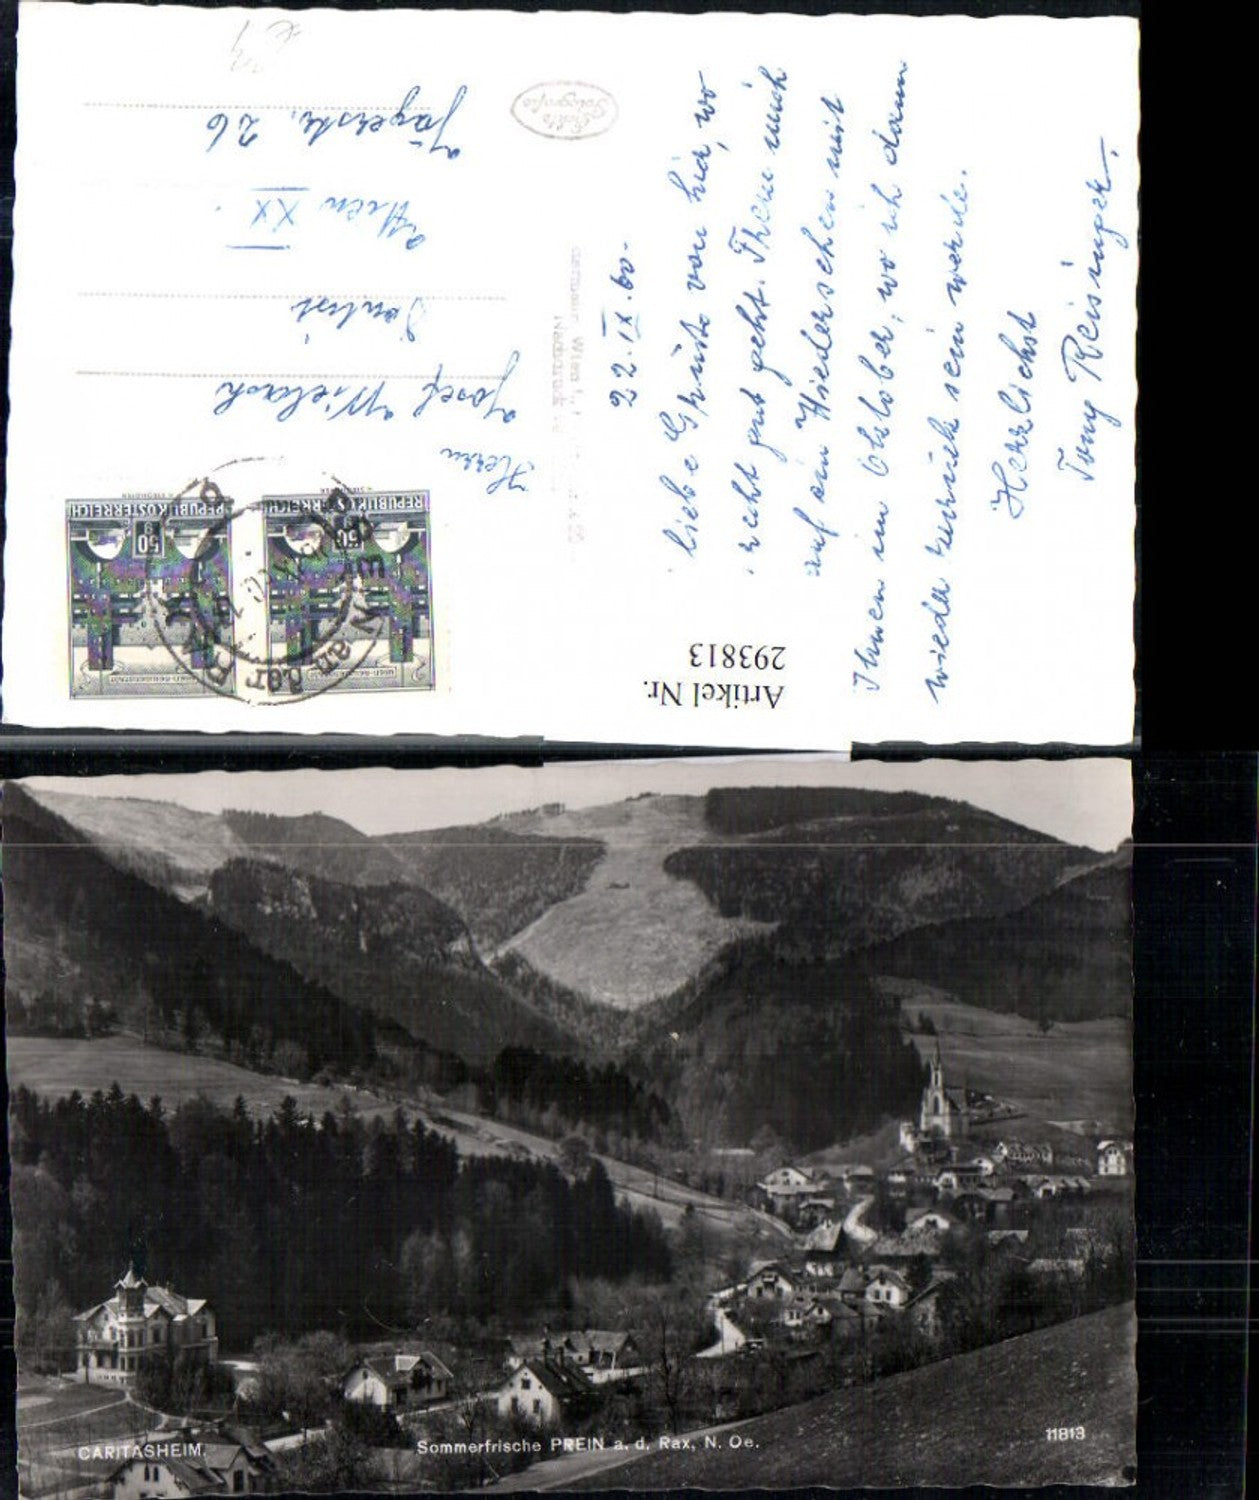 22.IX.60.
Liebe Grüße von hier, wo
recht gut geht. Ihnen mich
auf ein Wiedersehen mit
Ihnen im Oktober, wo ich dann
wieder zurück sein werde.
Herzlichst
Tony Reisinger.
Echte
Fotografie
REPUBLIK ÖSTERREICH
50
REPUBLIK ÖSTERREICH
50
an der RAX
Herrn
Josef
Dentist
Wien XX.
Jägerstr. 26
Artikel Nr.
293813
CARITASHEIM.
Sommerfrische PREIN a. d. Rax, N. Oe.
11813